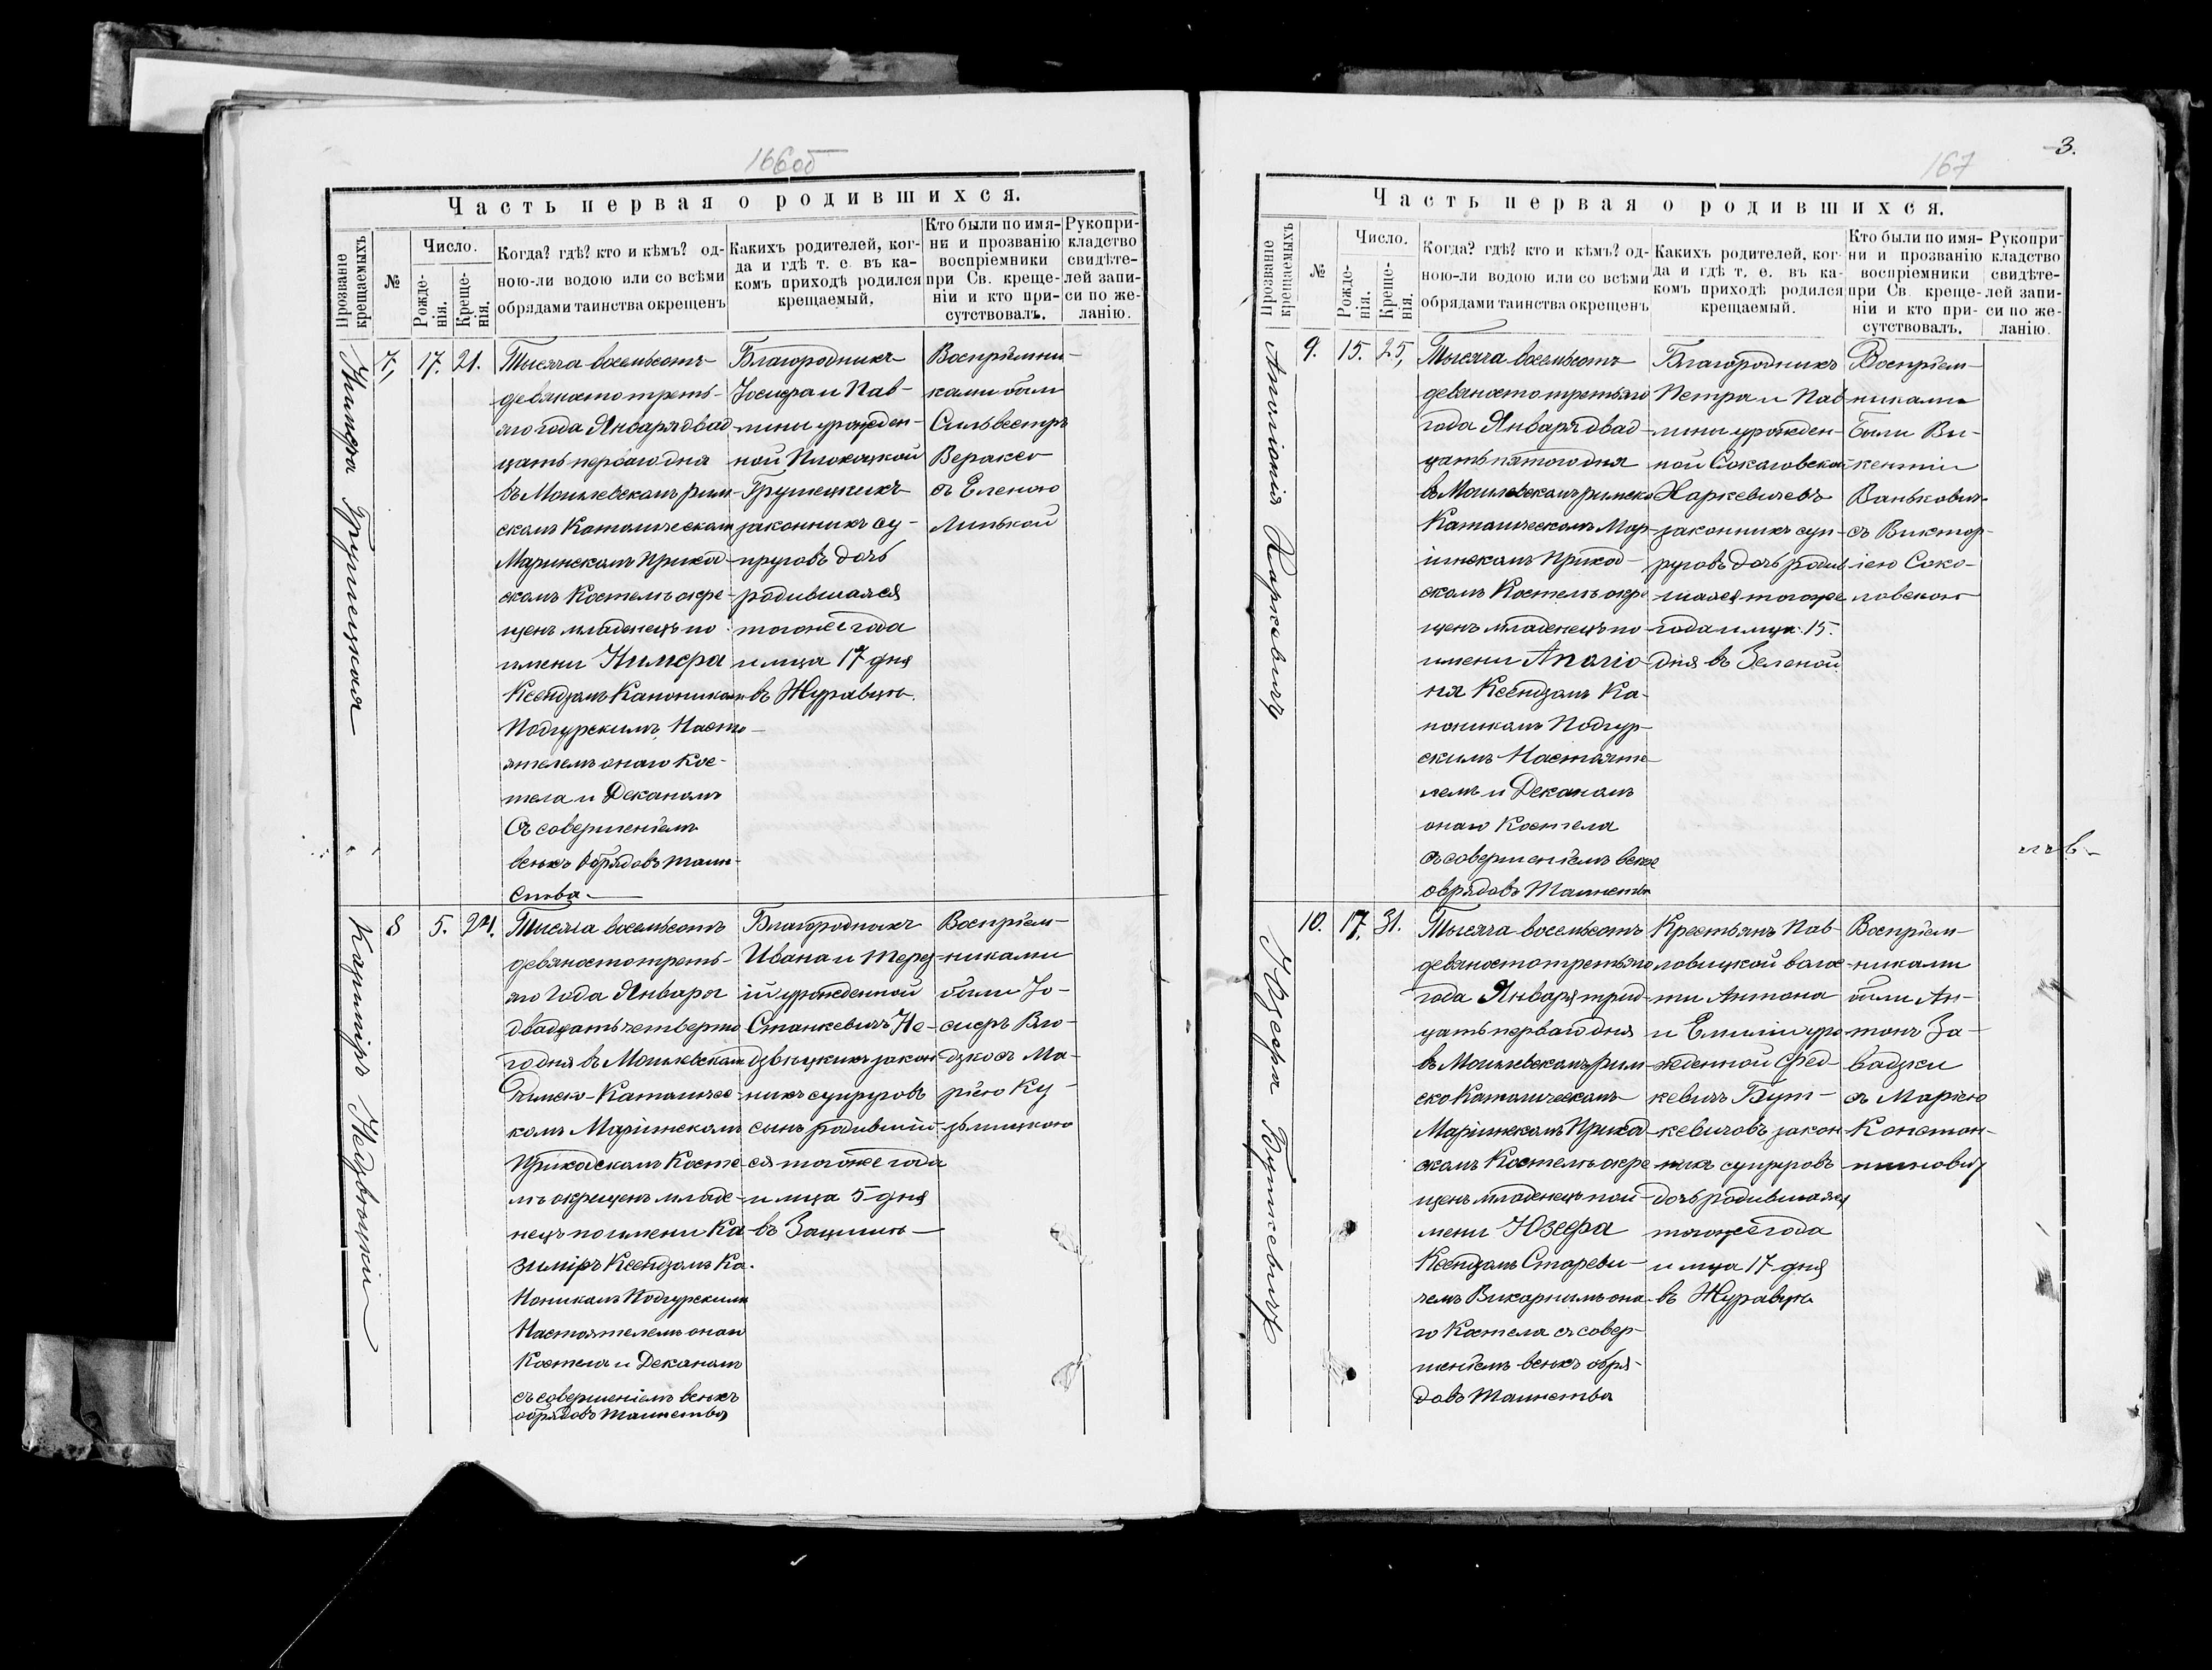 166об
Часть первая о родившихся.
Прозваніе крещаемыхъ
№
Число.
Рожде-
нія.
Креще-
нія.
Когда? гдѣ? кто и кѣмъ? од-
ною-ли водою или со всѣми
обрядами таинства окрещенъ
Какихъ родителей, ког-
да и гдѣ т. е. въ ка-
комъ приходѣ родился
крещаемый.
Кто были по имя-
ни и прозванію
воспріемники
при Св. креще-
ніи и кто при-
сутствовалъ.
Рукопри-
кладство
свидѣте-
лей запи-
си по же-
ланію.
Нимфа Грушецкая
7, 17. 21.
Тысяча восемьсотъ
девяносто треть-
яго года Января двад-
цать перваго дня
въ Могилевскомъ рим-
скомъ Католическомъ
Маріинскомъ Приход-
скомъ Костелѣ окре-
щенъ младенецъ по
имени Нимфа
Ксендзомъ Каноникомъ
Подгурскимъ Насто-
ятелемъ онаго Кос-
тела и Деканомъ
Съ совершеніемъ
всѣхъ обрядовъ таин-
ства
Благородныхъ
Іосифа и Пав-
лины урожден-
ной
Грушецкихъ
законныхъ су-
пруговъ дочь
родившаяся
того же года
и мца 17 дня
въ Журавцѣ.
Воспріемни-
ками были
Сильвестръ
Вераксо
съ Еленою
Линькой
Казиміръ Недзвѣцкій
8 5. 24.
Тысяча восемьсотъ
девяносто треть-
яго Года Января
двадцать четверто-
го дня въ Могилевскомъ
Римско-Католичес-
комъ Маріинскомъ
Приходскомъ Косте-
лѣ окрещенъ младе-
нецъ по имени Ка-
зиміръ Ксендзомъ Ка-
Ноникомъ Подгурскимъ
Настоятелемъ онаго
Костела и Деканомъ
съ совершеніемъ всѣхъ
обрядовъ таинства
Благородныхъ
Ивана и Терез-
іи урожденной
Станкевичъ Не-
дзвѣцкихъ закон-
ныхъ супруговъ
сынъ родившій-
ся того же года
и мца 5 дня
въ Защитѣ
Воспріем-
никами
были Іо-
сифъ
съ Ма-
ріею Ку-
167
3.
Часть первая о родившихся.
Прозваніе крещаемыхъ
№
Число.
Рожде-
нія.
Креще-
нія.
Когда? гдѣ? кто и кѣмъ? од-
ною-ли водою или со всѣми
обрядами таинства окрещенъ
Какихъ родителей, ког-
да и гдѣ т. е. въ ка-
комъ приходѣ родился
крещаемый.
Кто были по имя-
ни и прозванію
воспріемники
при Св. креще-
ніи и кто при-
сутствовалъ.
Рукопри-
кладство
свидѣте-
лей запи-
си по же-
ланію.
Аполіонія Харкевичъ
9. 15. 25,
Тысяча восемьсотъ
девяносто третьяго
года Января двад-
цать пятого дня
въ Могилевскомъ римско
Католическомъ Мар-
іинскомъ Приход-
скомъ Костелѣ окре-
щенъ младенецъ по
имени Аполіо-
нія Ксендзомъ Ка-
ноникомъ Подгур-
скимъ Настояте-
лемъ и Деканомъ
онаго Костела
съ совершеніемъ всѣхъ
обрядовъ Таинства
Благородныхъ
Петра и Пав-
лины урожден-
ной Соколовской
Харкевичевъ
законныхъ суп-
руговъ дочь родив-
шаяся того же
года и мца 15.
дня въ Зеленой
Воспріем-
никами
были Ви-
кентій
Ваньковичъ
съ Виктор-
іею Соко-
ловскою
Юзефа Буткевичъ
10. 17. 31.
Тысяча восемьсотъ
девяносто третьяго
года Января трид-
цать перваго дня
въ Могилевскомъ рим-
ско Католическомъ
Маріинскомъ Приход-
скомъ Костелѣ окре-
щенъ младенецъ по и-
мени Юзефа
Ксендзомъ Стареви-
чемъ Викарнимъ она-
го Костела съ совер-
шеніемъ всѣхъ обря-
довъ Таинства
Крестьянъ Пав-
ловицкой волос-
ти Антона
и Емиліи уро-
жденной Фред-
кевичъ Бут-
кевичовъ закон-
ныхъ супруговъ
дочь родившаяся
того же года
и мца 17 дня
въ Журавцѣ
Воспріем-
никами
были Ан-
тонъ За-
вадзки
съ Маріею
Констан-
тиновичъ